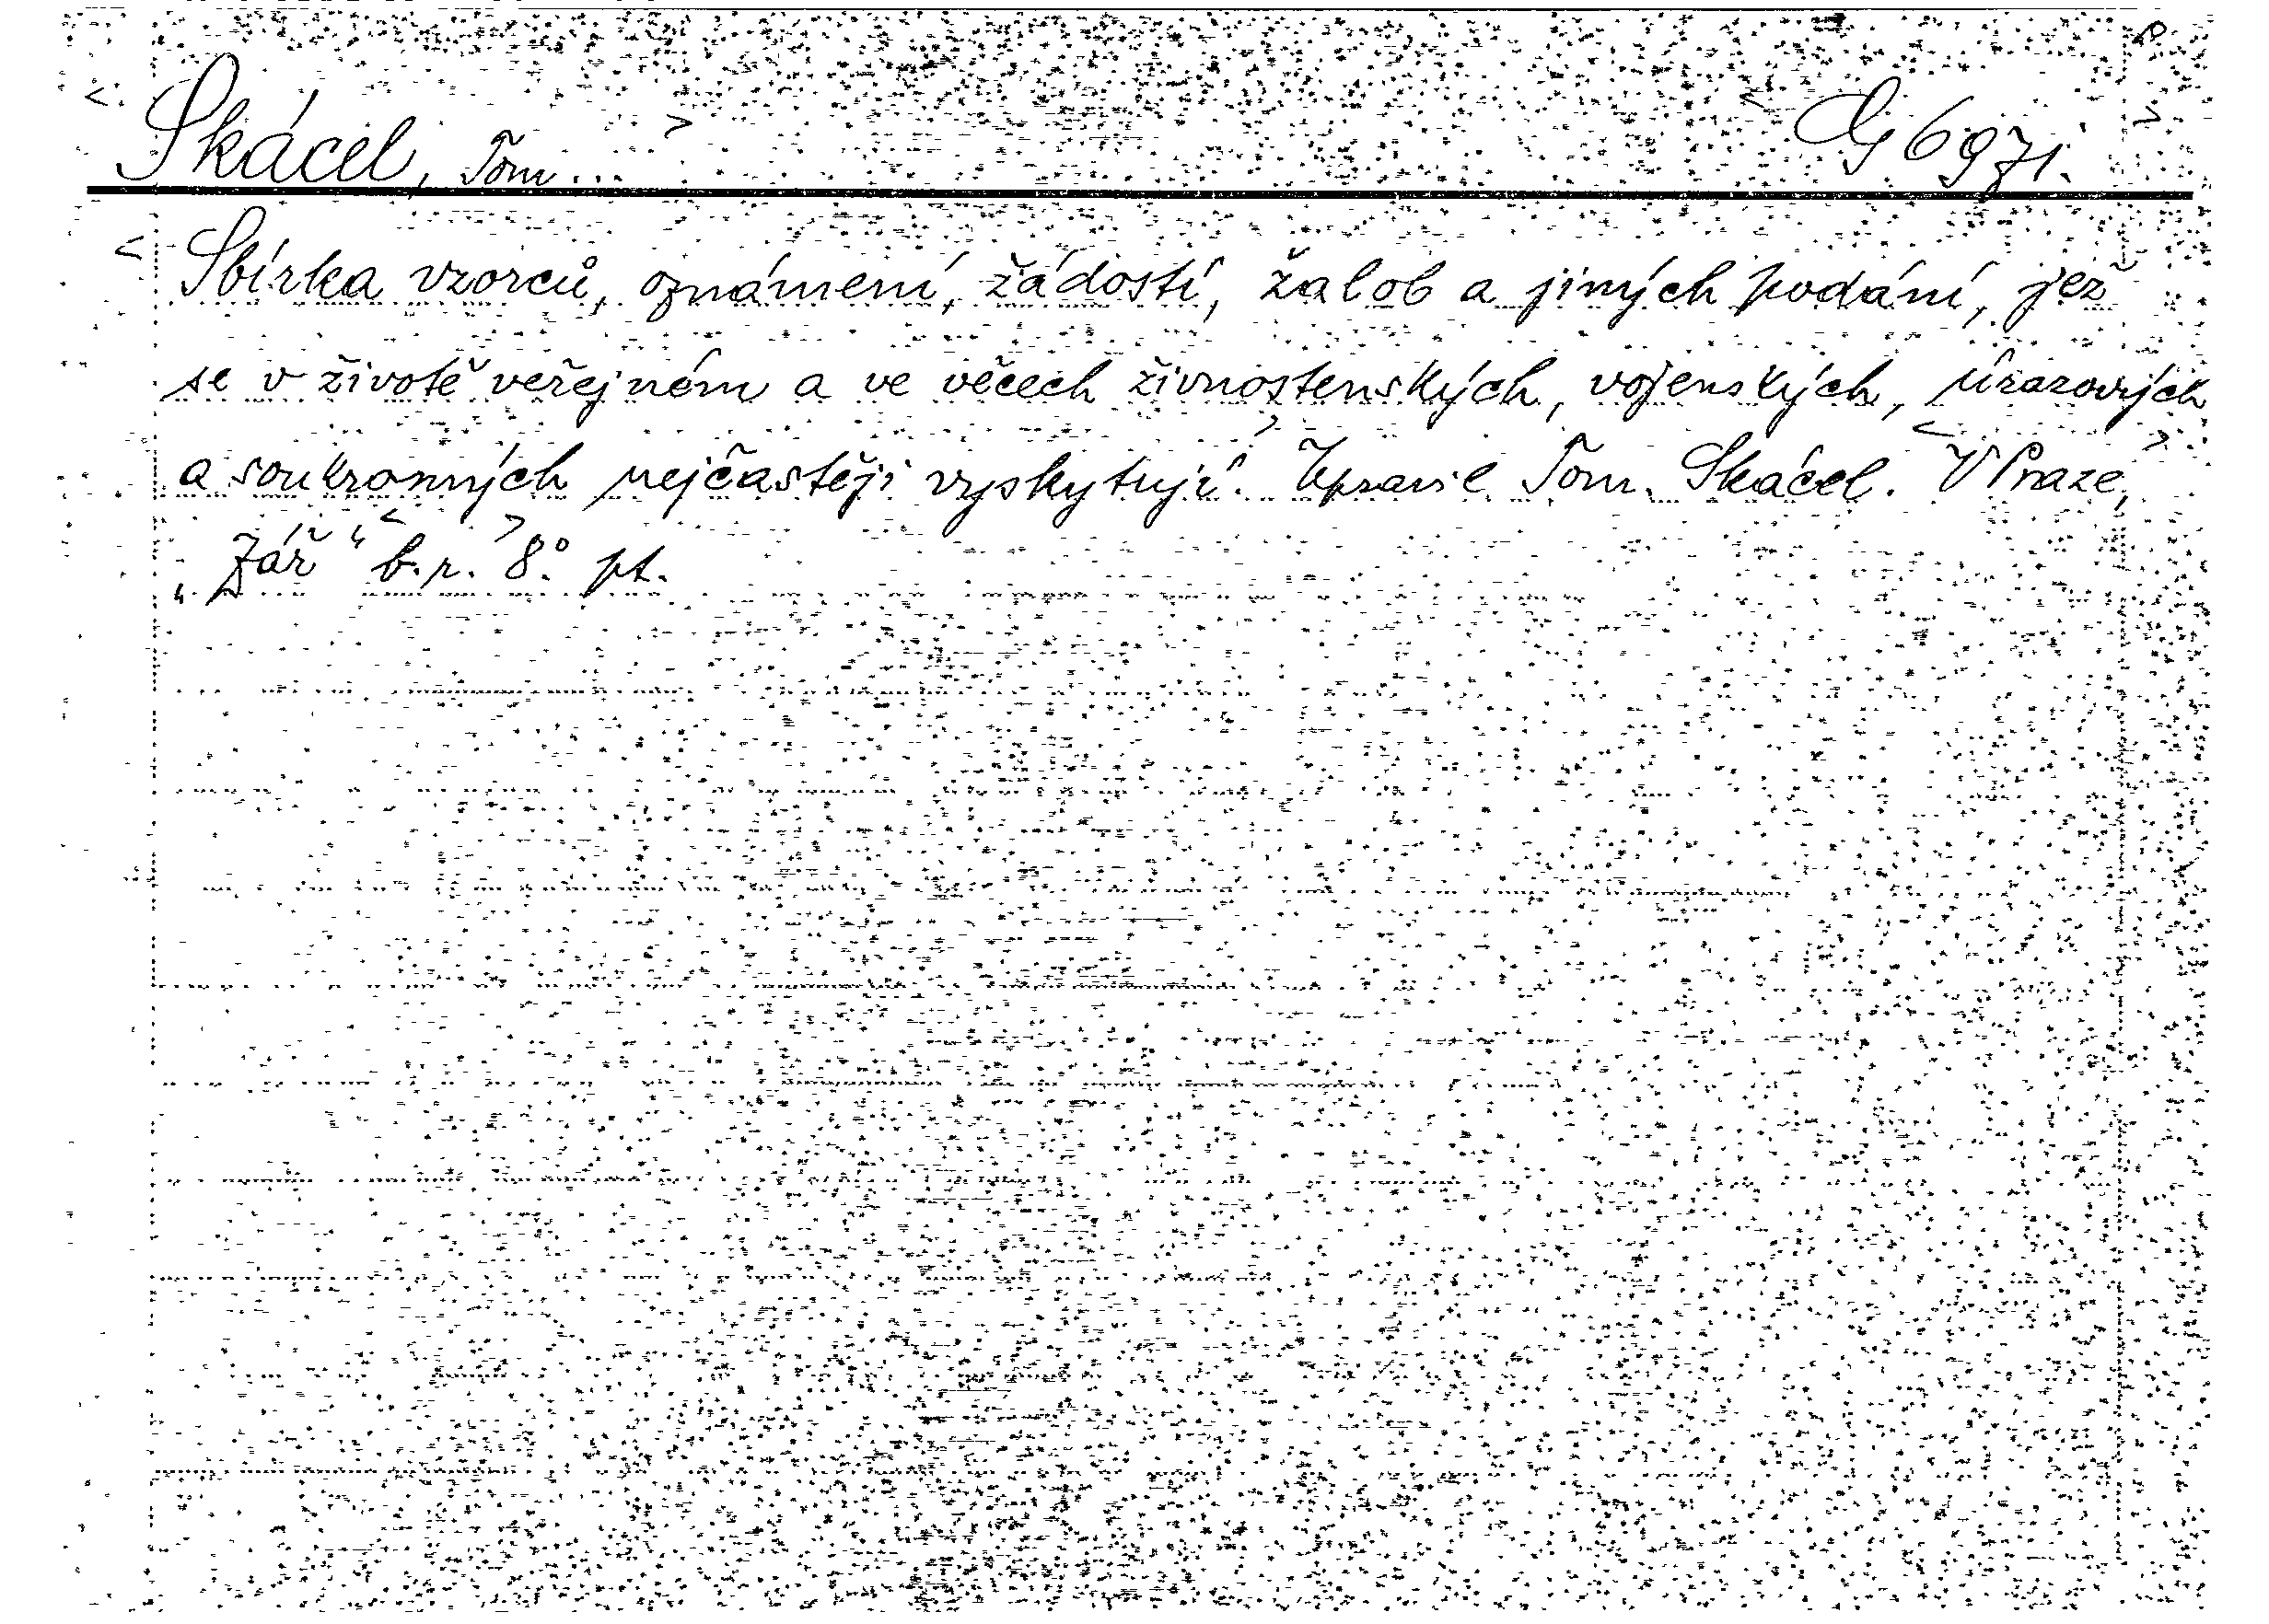 < Skácel, Tom... > < G 6971. >
< Sbírka vzorců, oznámení, žádostí, žalob a jiných podání, jež
se v životě veřejném a ve věcech živnostenských, vojenských, úrazových
a soukromných nejčastěji vyskytují.> Upravil Tom. Skácel. <V Praze,>
„Zář“ <b.r.> 8.° pt.